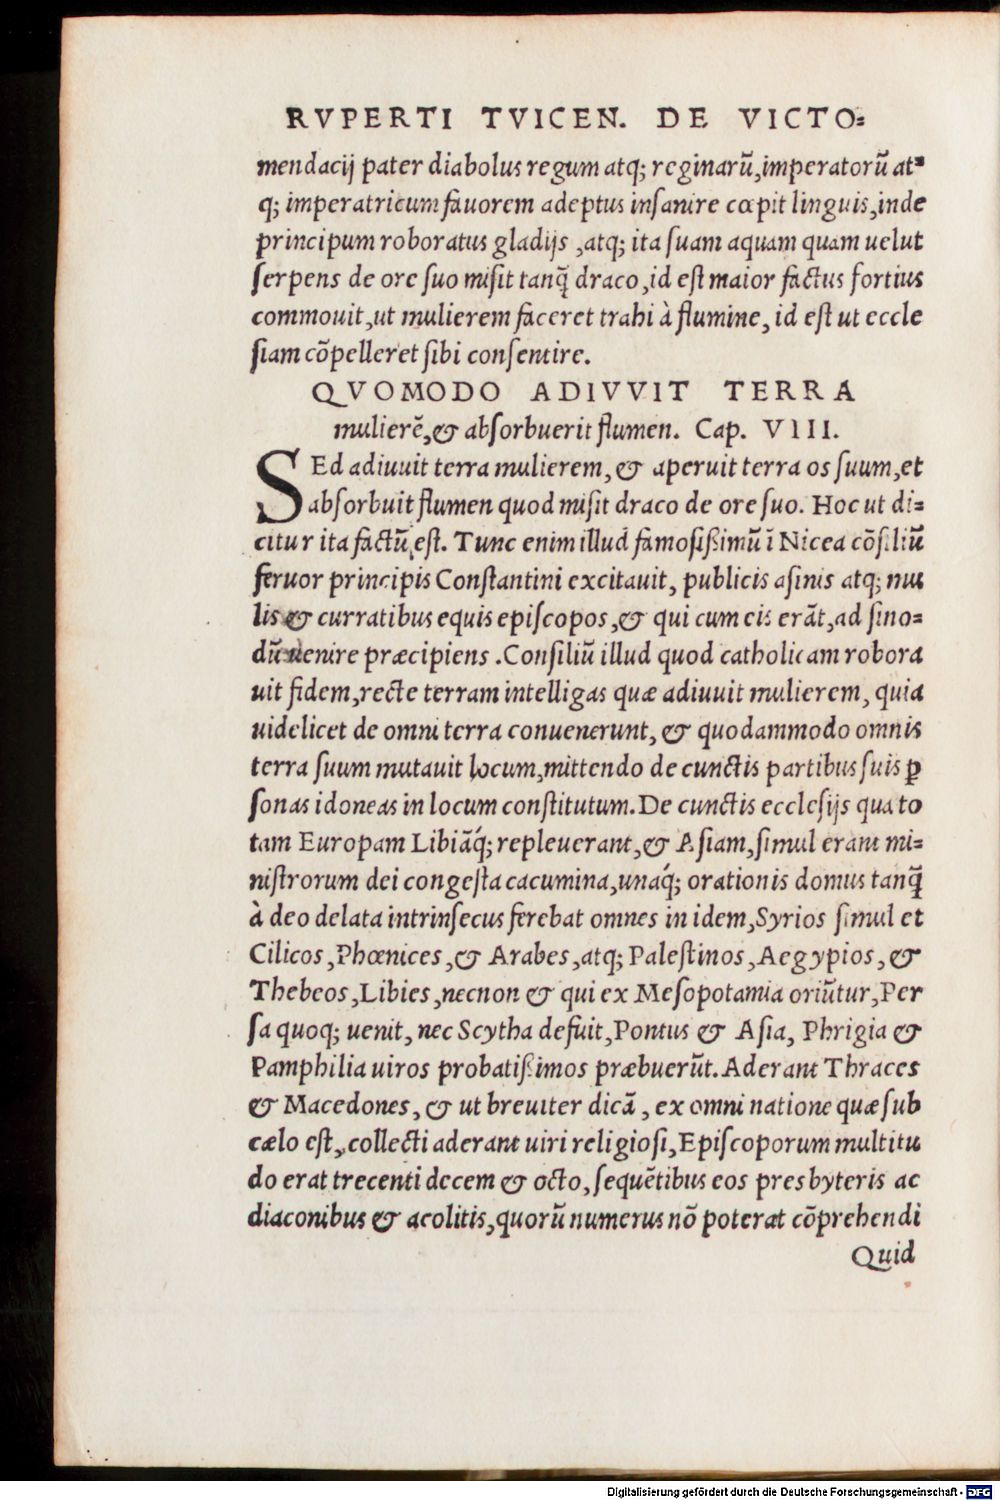 RVPERTI TVICEN. DE VICTO⸗
mendacij pater diabolus regum atq; reginarũ,imperatorũ at⸗
q; imperatricum fauorem adeptus insanire cœpit linguis,inde
principum roboratus gladijs ,atq; ita suam aquam quam uelut
serpens de ore suo misit tanq̃ draco,id est maior factus fortius
commouit,ut mulierem faceret trahi à flumine, id est ut eccle
siam cõpelleret sibi consentire.
QVOMODO ADIVVIT TERRA
mulierẽ,& absorbuerit flumen. Cap. VIII.
SEd adiuuit terra mulierem,& aperuit terra os suum,et
absorbuit flumen quod misit draco de ore suo. Hoc ut di⸗
citur ita factũ est. Tunc enim illud famosißimũ ĩ Nicea cõsiliũ
feruor principis Constantini excitauit, publicis asinis atq; mu
lis & curratibus equis episcopos,& qui cum eis erãt,ad sino⸗
dũ uenire præcipiens .Consiliũ illud quod catholicam robora
uit fidem,recte terram intelligas quæ adiuuit mulierem, quia
uidelicet de omni terra conuenerunt, & quodammodo omnis
terra suum mutauit locum,mittendo de cunctis partibus suis ꝑ
sonas idoneas in locum constitutum.De cunctis ecclesijs qua to
tam Europam Libiãq́; repleuerant,& Asiam,simul erant mi⸗
nistrorum dei congesta cacumina,unaq́; orationis domus tanq̃
à deo delata intrinsecus ferebat omnes in idem,Syrios simul et
Cilicos,Phœnices,& Arabes,atq; Palestinos,Aegypios,&
Thebeos,Libies,necnon & qui ex Mesopotamia oriũtur,Per
sa quoq; uenit, nec Scytha defuit,Pontus & Asia, Phrigia &
Pamphilia uiros probatißimos præbuerũt.Aderant Thraces
& Macedones,& ut breuiter dicã , ex omni natione quæ sub
cælo est,,collecti aderant uiri religiosi,Episcoporum multitu
do erat trecenti decem & octo,sequẽtibus eos presbyteris ac
diaconibus & acolitis,quorũ numerus nõ poterat cõprehendi
Quid
Digitalisierung gefördert durch die Deutsche Forschungsgemeinschaft - DFG